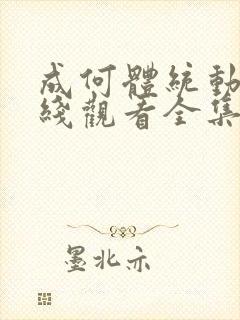 成何體統動
綫觀看全集
墨北亦